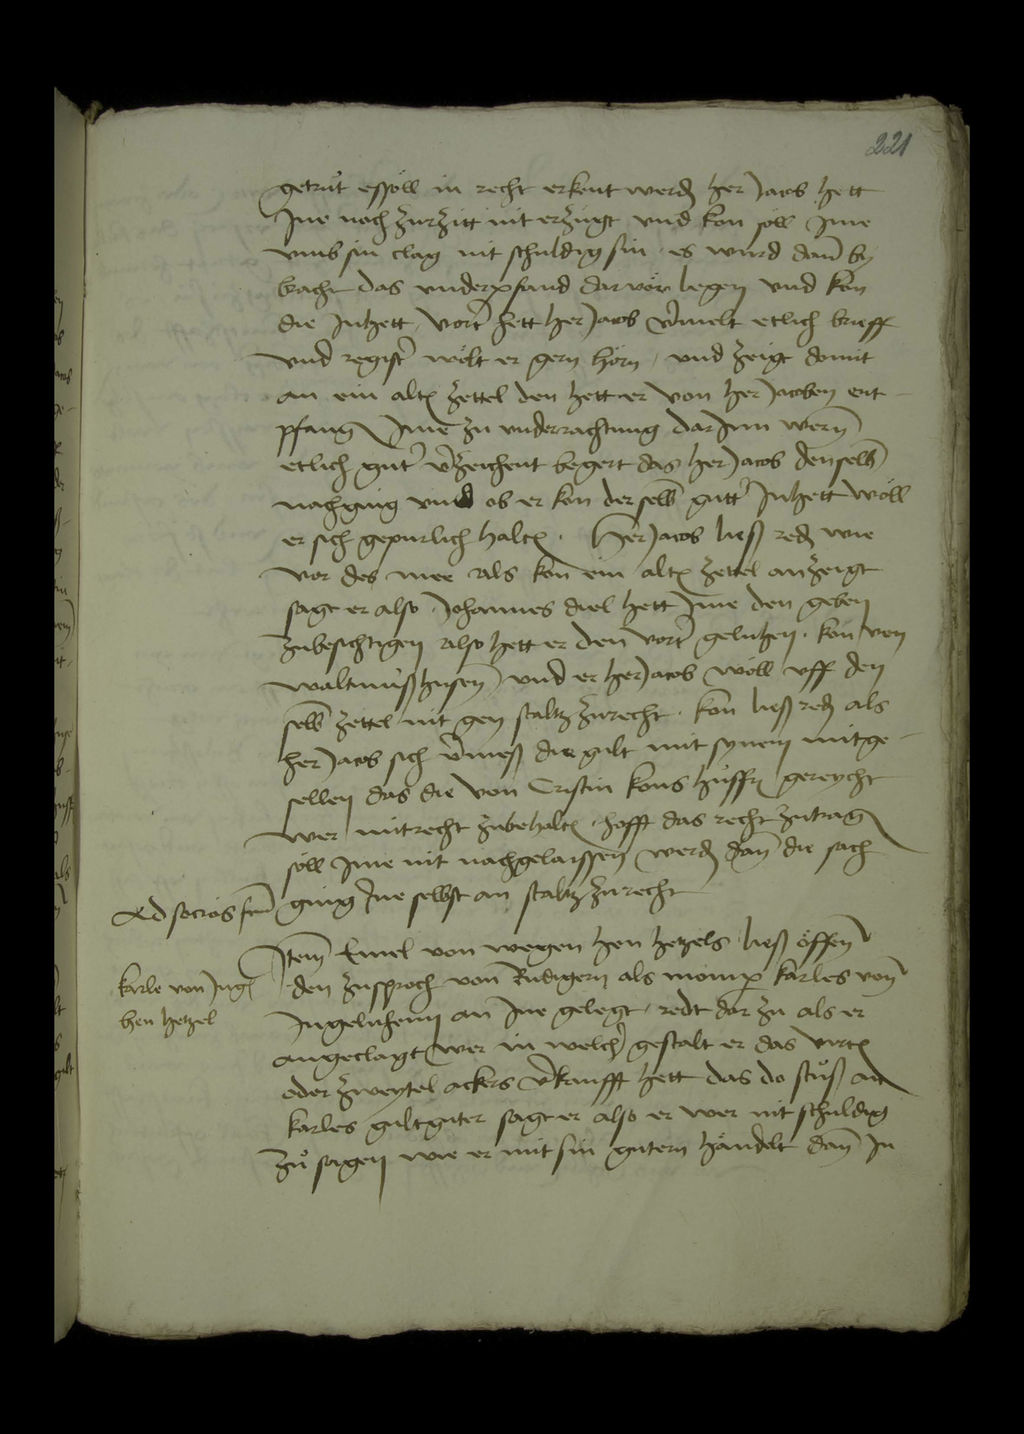 221
getrut es söll in recht erkent werden her Jacob hett
Ine noch zurzitt nit erzugt vnd kon söll Ime
vmb sin clag nit schuldig sin · es wurd dan by
bracht das vnderpfand dar vor legen vnd kon
die Inhett · vorter hett her Jacob vermelt etlich brieff
vnd register wolt er gern hörn / vnd zeigt domit
an ein alten zettel den hett er von her Jacoben ent-
pfangen Ime zu vnderrachtung dar Inn weren
etlich guter verzeichent begert das her Jacob denselben
nachging vnd ob er kon derselben gutter Inhett wöll
er sich gepurlich halten · Her Jacob ließ reden wie
vor des mee als kon ein alten zettel anzeigt
sagt er also Johannes diel hett Ime den geben
zubesichtigen also hett er den vorter geluhen · kon von
waltmanßhusen vnd er her Jacob wöll vff den
selben zettel nit gen staltz zurecht · kon ließ reden als
her Jacob sich vermeß die gult mit synen mitge-
sellen das die von Cristin kons huffen gereycht
wer mit recht zubehalten · hofft das recht zutragen
söll Ime nit nachgelaissen werden dan die sach
ging Ine selbst an staltz zurecht
Ad socios
Item Emel von wegen hen hetzels ließ öffen
karle von Ingel
hen hetzel
den zusproch von Rudigern als momper karles von
Ingelnheim an Ine gelegt · redt dar zu als er
angeclagt wer in welcher gestalt er das virtel
oder zweytel ackers verkaufft hett das do stuß an
karles gult guter sagt er also er wer nit schuldig
zu sagen wie er mit sin gutern händelt dan In